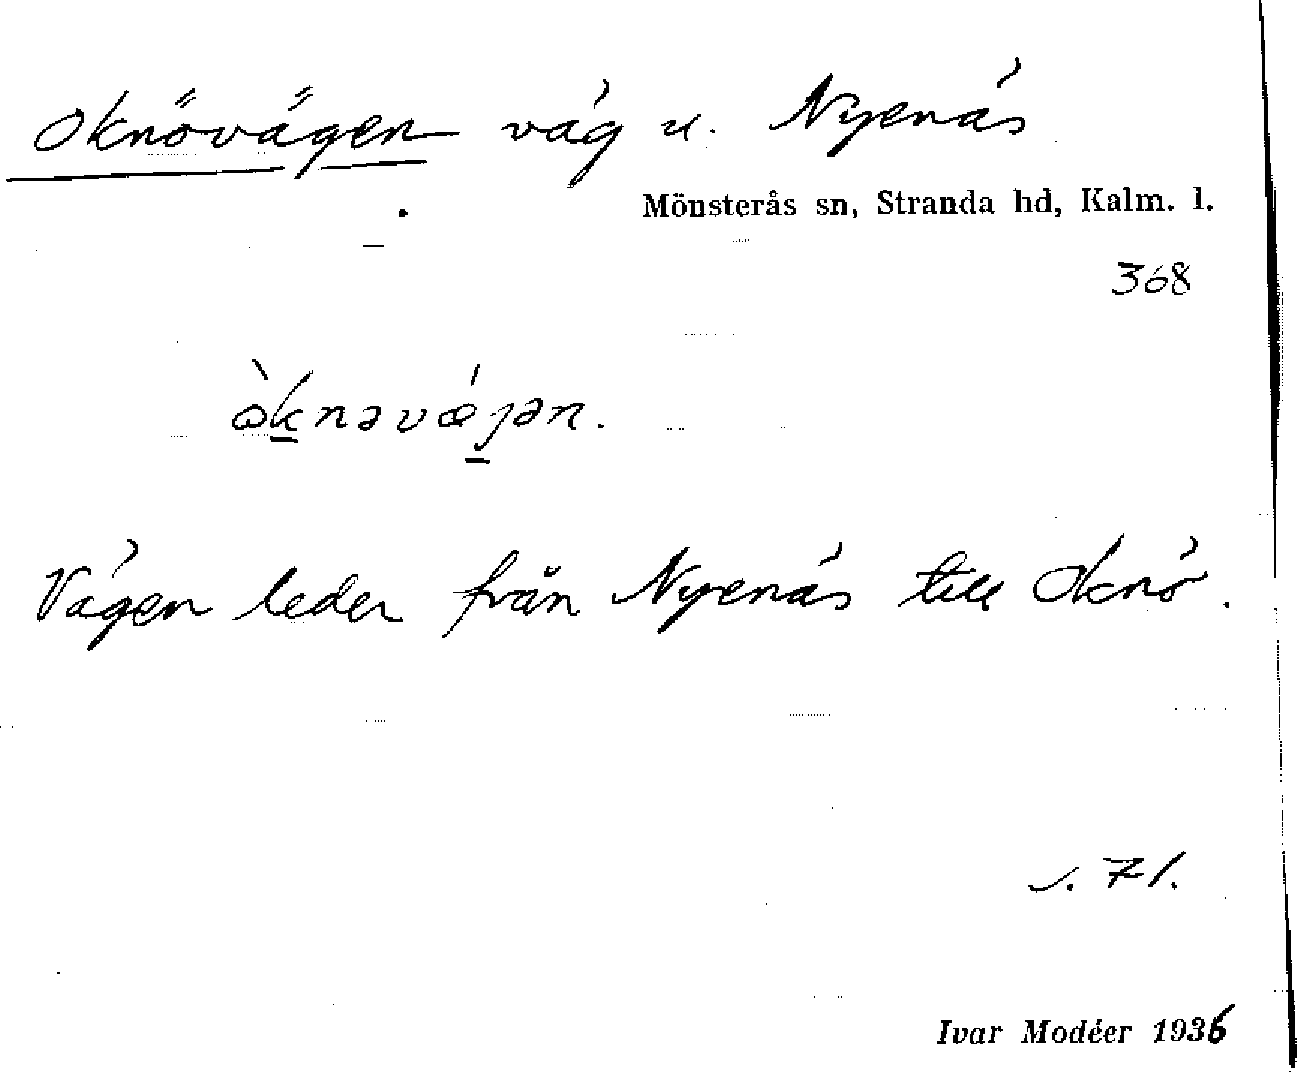 Oknövägen väg u. Nyenäs
Mönsterås sn, Stranda hd, Kalm. l.
368
ὼknəvǽjən.
Vägen leder från Nyenäs till Oknö.
s. 71.
Ivar Modéer 1936